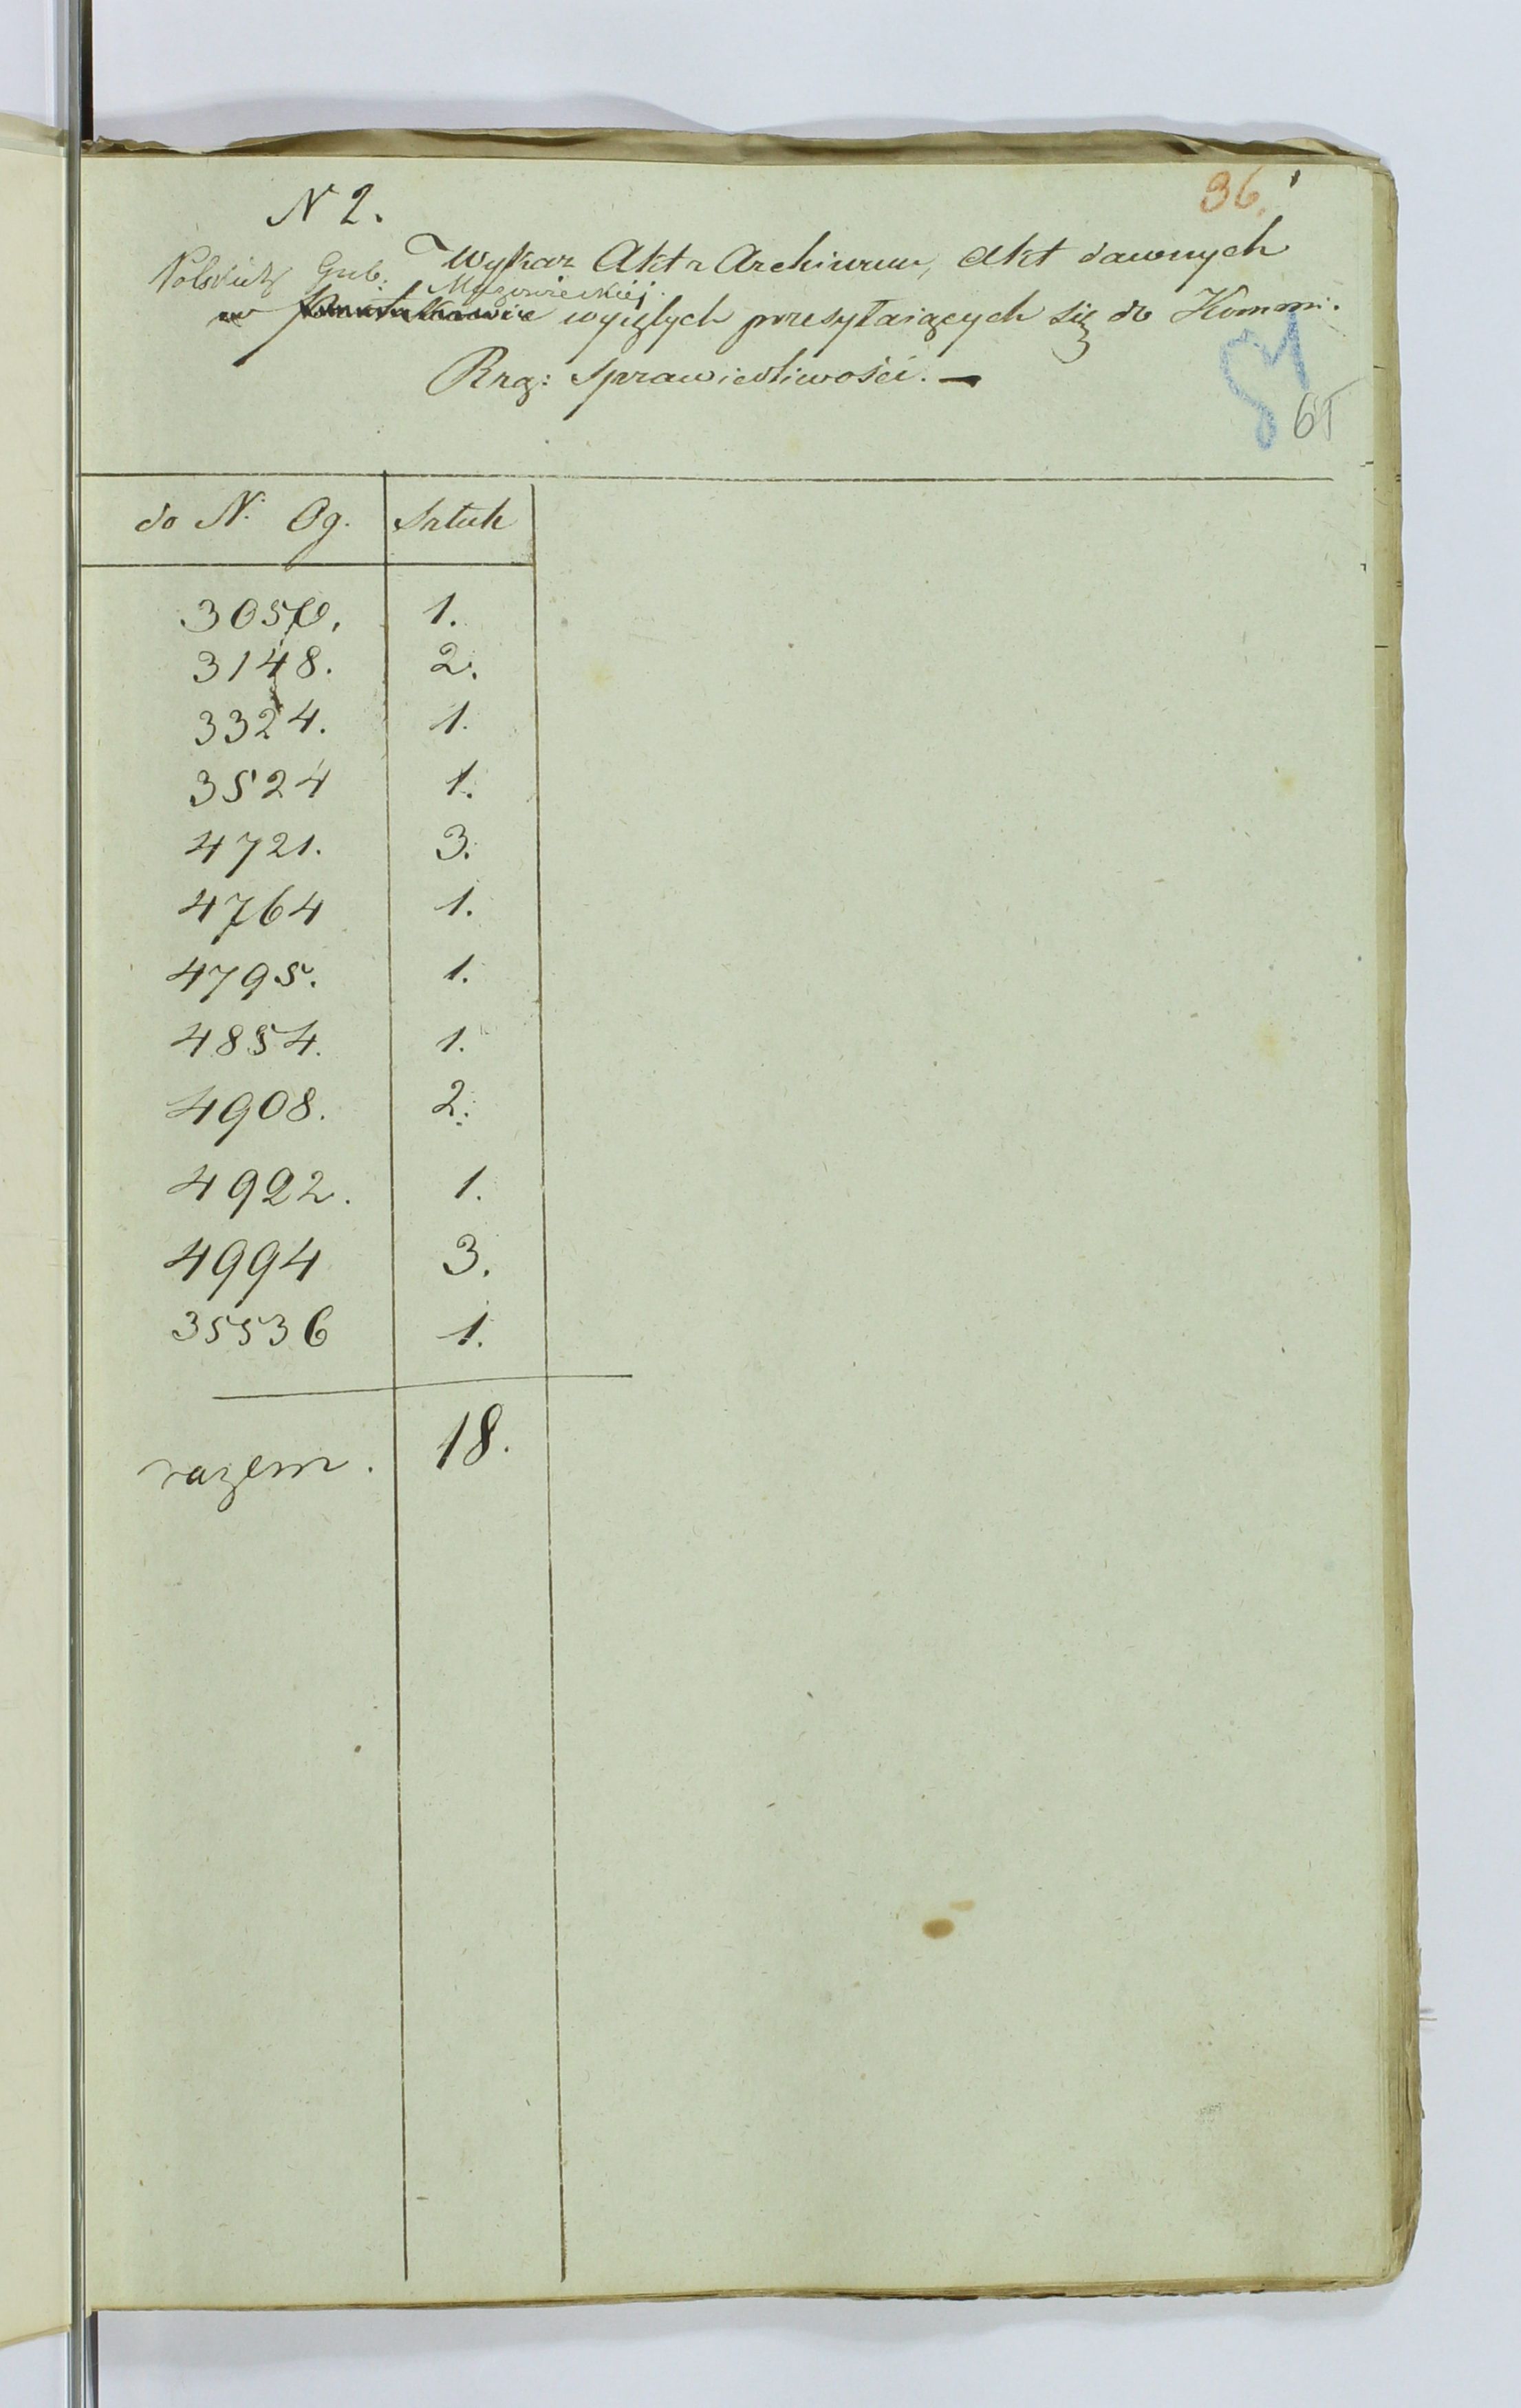 N 2.
36.
Wykaz Akt z Archiwum, Akt dawnych
Polskich Gub: Mazowieckiéj.
w wyiętych przesyłaiących się do Kommi:
Rzą: Sprawiedliwości. —
61
do N. Og. Sztuk
3050. 1.
3148. 2.
3324. 1.
3524 1.
4721. 3.
4764 1.
4795. 1.
4854. 1.
4908. 2.
4922. 1.
4994 3.
35536 1.
razem. 18.